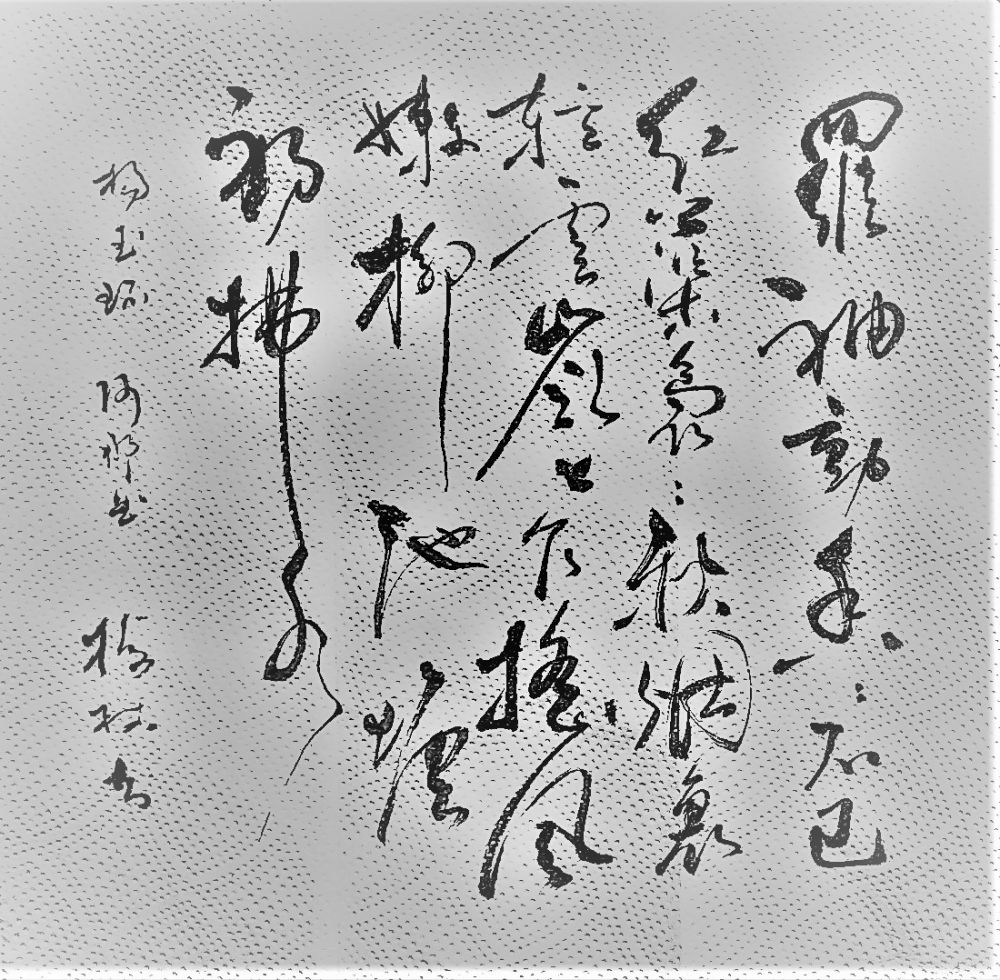 羅袖動香々不已
紅蕖裊々秋烟裏
輕雲嶺上乍搖風
嫩柳池塘
初拂水
楊玉環 阿那曲